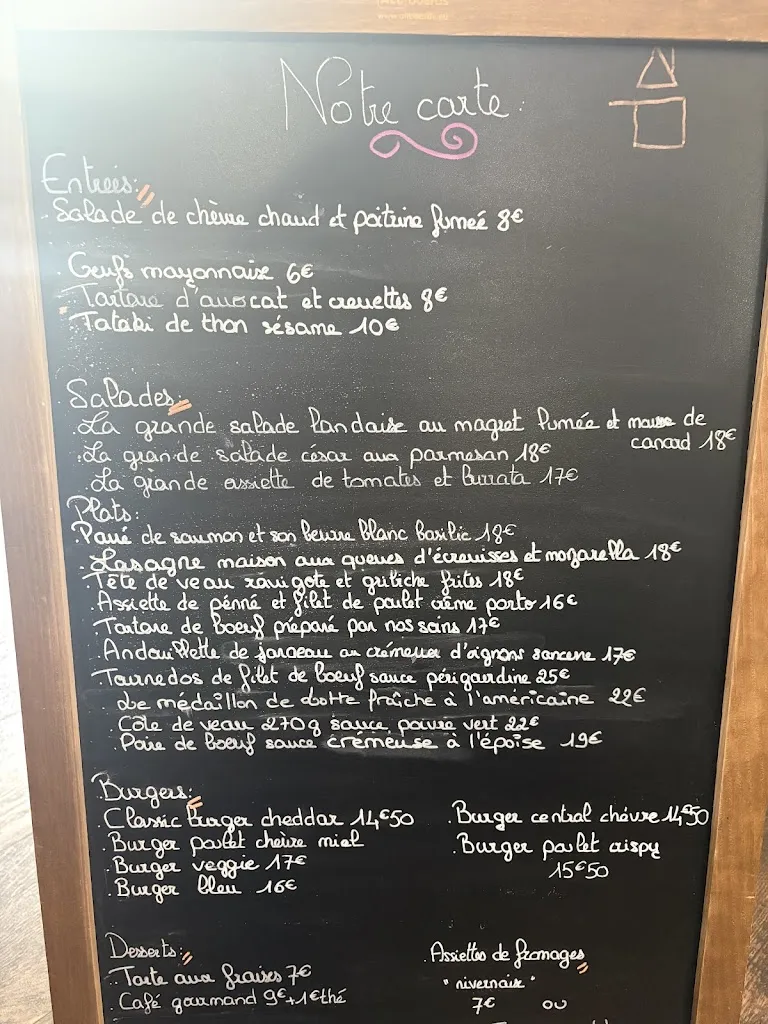 Notre carte:
Entrées:
. Salade de chèvre chaud et poitrine fumeé 8€
. Oeufs mayonnaise 6€
. Tartare d'avocat et crevettes 8€
. Tataki de thon sésame 10€
Salades:
. La grande salade landaise au magret fumée et mousse de canard 18€
. La grande salade césar au parmesan 18€
. La grande assiette de tomates et burrata 17€
Plats:
. Pavé de saumon et son beurre blanc basilic 18€
. Lasagne maison aux queues d'écrevisses et mozarella 18€
. Tête de veau ravigote et gribiche frites 18€
. Assiette de pénné et filet de poulet crème porto 16€
. Tartare de boeuf préparé par nos soins 17€
. Andouillette de jargeau au crémeux d'oignons sancerre 17€
Tournedos de filet de boeuf sauce périgourdine 25€
. Le médaillon de lotte fraîche à l'américaine 22€
. Côte de veau 270g sauce poivre vert 22€
. Poire de boeuf sauce crémeuse à l'époise 19€
Burgers:
. Classic burger cheddar 14€50
. Burger poulet chèvre miel
. Burger veggie 17€
. Burger bleu 16€
. Burger central chévre 14€50
. Burger poulet crispy
15€50
Desserts:
. Tarte aux fraises 7€
. Café gourmand 9€+1€thé
. Assiettes de fromages
"nivernaix"
7€ ou